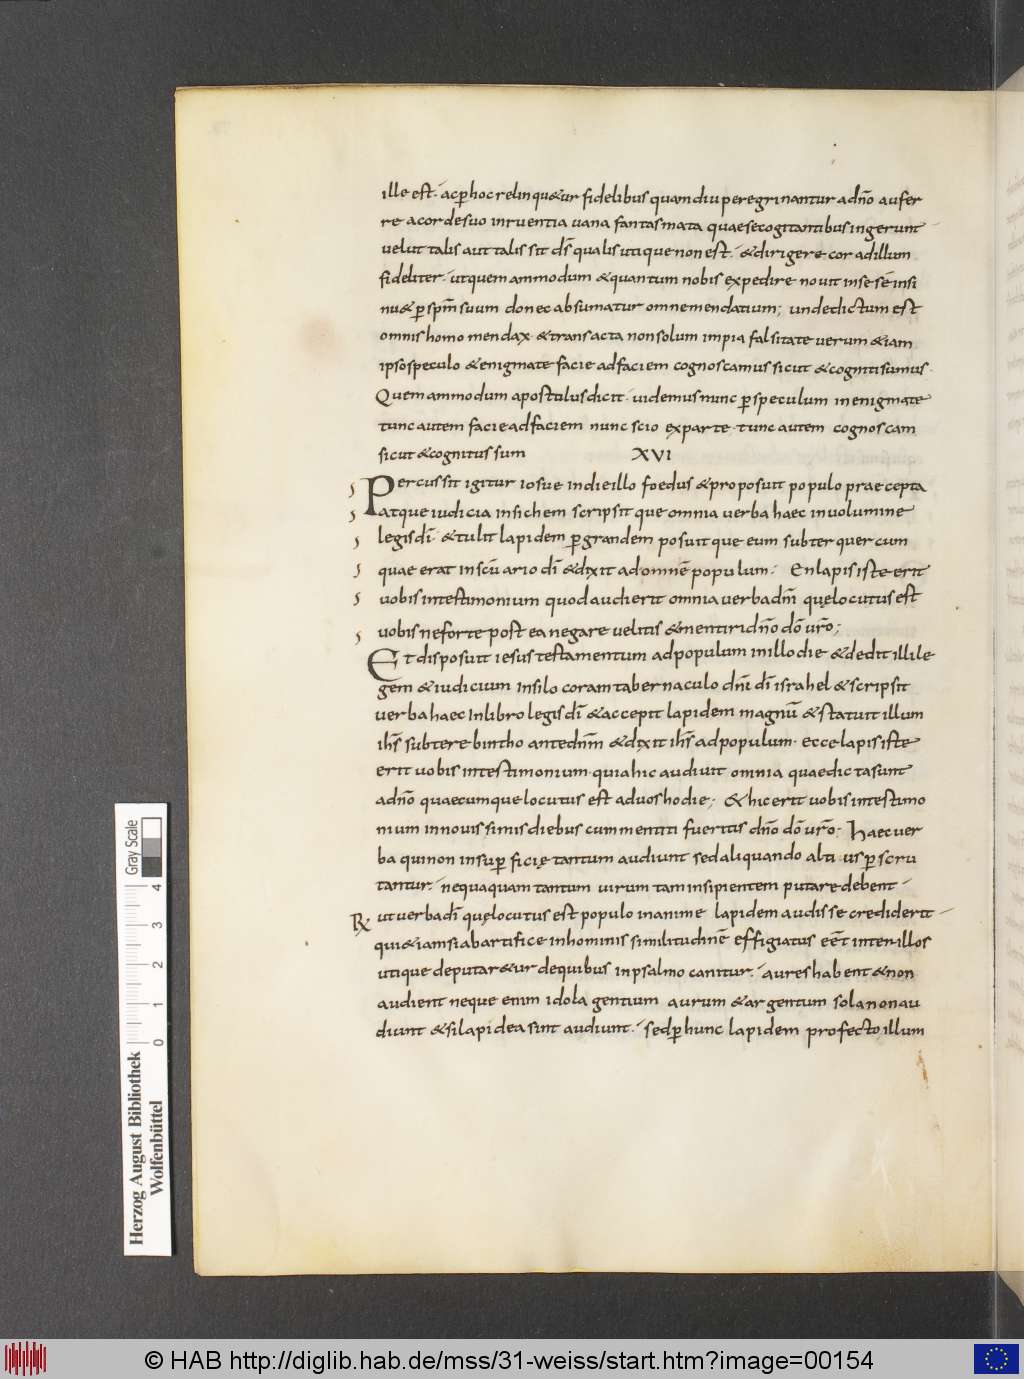 ille est · ac ꝑ hoc relinqu&ur fidelibus quamdiu peregrinantur a dño aufer
re a corde suo inruentia uana fantasmata quae se cogitantibus ingerunt
uelut talis aut talis sit dš qualis utique non est · & dirigere cor ad illum
fideliter · ut quemammodum & quantum nobis expedire nouit in se sē insi
nu& ꝑ spm̄ suum donec absumatur omne mendatium ; unde dictum est
omnis homo mendax & transacta non solum impia falsitate uerum &iam
ipso speculo & enigmate facie ad faciem cognoscamus sicut & cogniti sumus ·
Quemammodum apostulus dicit · uidemus nunc ꝑ speculum in enigmate
tunc autem facie ad faciem nunc scio ex parte · tunc autem cognoscam
sicut & cognitus sum XVI
Percussit igitur iosue in die illo foedus & proposuit populo praecepta
atque iudicia in sichem scripsit que omnia uerba haec in uolumine
legis dī · & tulit lapidem ꝑgrandem posuit que eum subter quercum
quae erat in scūario dī & dixit ad omnē populum · En lapis iste erit
uobis in testimonium quod audierit omnia uerba dnī quę locutus est
uobis ne forte postea negare uelitis & mentiri dño dō uro ;
Et disposuit iesus testamentum ad populum in illo die & dedit illi le
gem & iudicium In silo coram tabernaculo dnī dī israhel & scripsit
uerba haec In libro legis dī & accepit lapidem magnū & statuit illum
ihs̄ sub terebintho ante dnm̄ & dixit ihs̄ ad populum · ecce lapis iste
erit uobis in testimonium · quia hic audiuit omnia quae dicta sunt
a dño quaecumque locutus est ad uos hodie ; & hic erit uobis in testimo
nium in nouissimis diebus cum mentiti fueritis dño dō uro ; Haec uer
ba qui non in suꝑficię tantum audiunt sed aliquando altius ꝑscru
tantur · nequaquam tantum uirum tam insipientem putare debent ·
R ut uerba dī quę locutus est populo inanime lapidem audisse crediderit
qui &iamsi ab artifice in hominis similitudinē effigiatus eēt inter illos
utique deputar&ur de quibus in psalmo canitur · aures habent & non
audient neque enim idola gentium aurum & argentum sola non au
diunt & si lapidea sint audiunt · sed ꝑ hunc lapidem profecto illum
Gray Scale
0 1 2 3 4
Herzog August Bibliothek
Wolfenbüttel
© HAB http://diglib.hab.de/mss/31-weiss/start.htm?image=00154